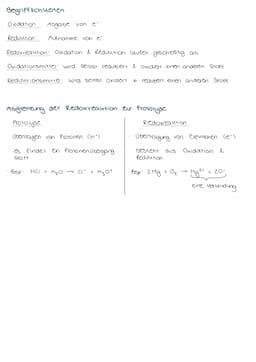 Begrifflichkeiten
Oxidation: Abgabe von e⁻
Reduktion: Aufnahme von e⁻
Redoxreaktion: Oxidation & Reduktion laufen gleichzeitig ab
Oxidationsmittel: wird selbst reduziert & oxidiert einen anderen Stoff
Reduktionsmittel: wird selbst oxidiert & reduziert einen anderen Stoff
Abgrenzung der Redoxreaktion zur Protolyse
Protolyse
Übertragen von Protonen (H⁺)
es findet ein Protonenübergang
statt
Bsp: HCl + H₂O → Cl⁻ + H₃O⁺
Redoxreaktion
Übertragung von Elektronen (e⁻)
besteht aus Oxidation &
Reduktion
Bsp: 2Mg + O₂ → Mg²⁺ + 2O⁻
eine Verbindung